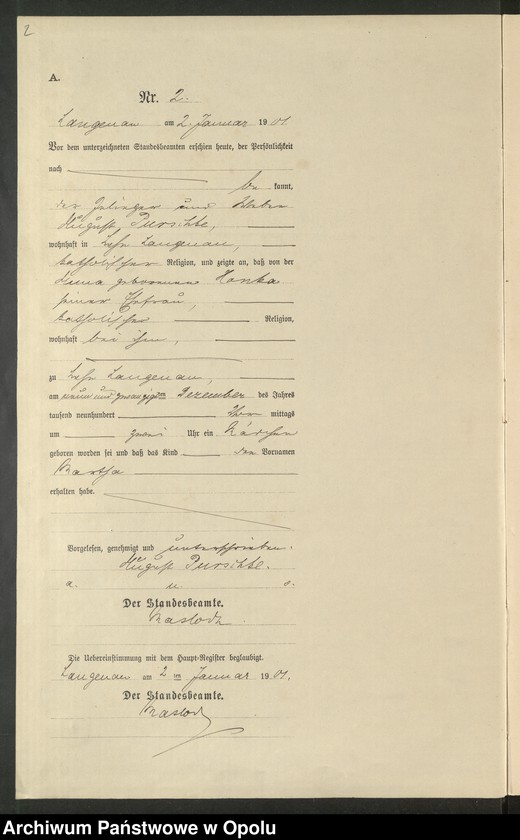 2
A.
Nr. 2.
Langenau am 2. Januar 1901.
Vor dem unterzeichneten Standesbeamten erschien heute, der Persönlichkeit
nach
be kannt,
der und Weber
August Purschke,
wohnhaft in Langenau,
katholischer Religion, und zeigte an, daß von der
Anna geborenen Honka
seiner Ehefrau,
katholischer Religion,
wohnhaft bei ihm,
zu Langenau,
am neun und zwanzigsten Dezember des Jahres
tausend neunhundert Vor mittags
um zwei Uhr ein Mädchen
geboren worden sei und daß das Kind den Vornamen
Martha
erhalten habe.
Vorgelesen, genehmigt und unterschrieben.
August Purschke.
a. u. s.
Der Standesbeamte.
Die Uebereinstimmung mit dem Haupt-Register beglaubigt.
Langenau am 2 ten Januar 1901.
Der Standesbeamte.
Archiwum Państwowe w Opolu